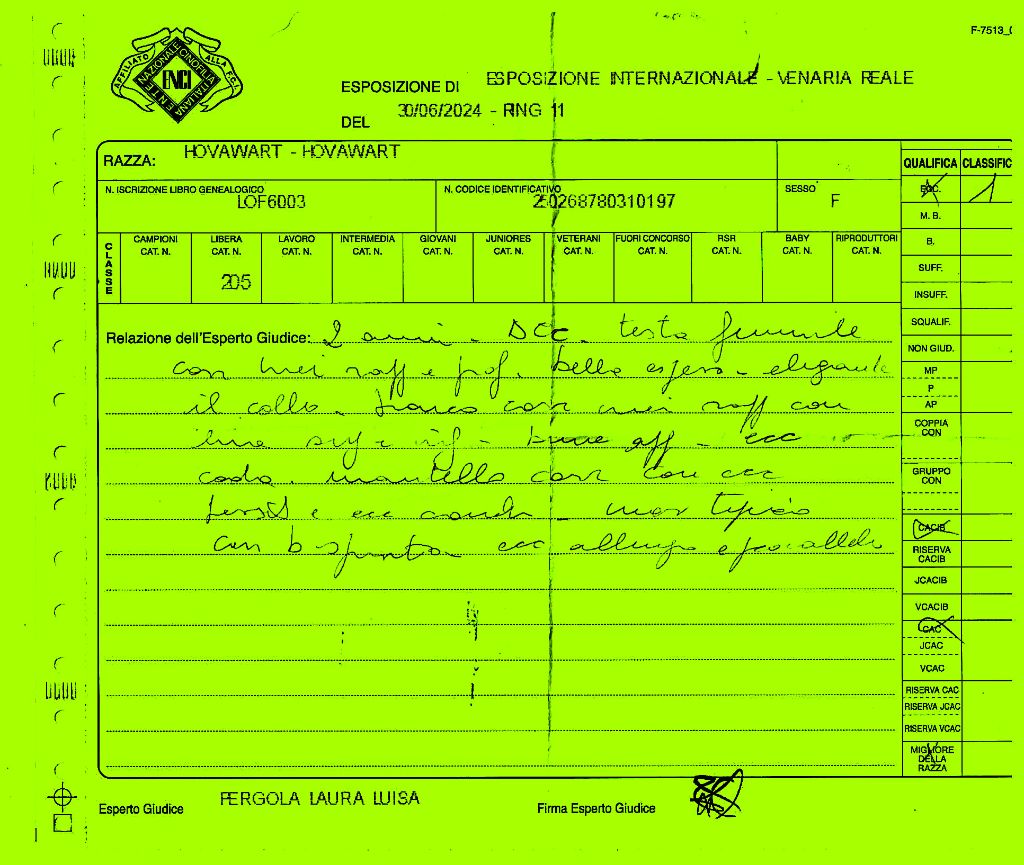 F-7513_
AFFILIATO ALLA F.C.I.
ENTE NAZIONALE CINOFILIA ITALIANA
ENCI
ESPOSIZIONE DI ESPOSIZIONE INTERNAZIONALE - VENARIA REALE
DEL 30/06/2024 - RING 11
RAZZA: HOVAWART - HOVAWART
QUALIFICA CLASSIFIC
N. ISCRIZIONE LIBRO GENEALOGICO N. CODICE IDENTIFICATIVO SESSO
LOF6003 250268780310197 F
ECC. 1
M. B.
B.
SUFF.
INSUFF.
SQUALIF.
NON GIUD.
MP
P
AP
COPPIA CON
GRUPPO CON
CACIB
RISERVA CACIB
JCACIB
VCACIB
CAC
JCAC
VCAC
RISERVA CAC
RISERVA JCAC
RISERVA VCAC
MIGLIORE DELLA RAZZA
CLASSE
CAMPIONI LIBERA LAVORO INTERMEDIA GIOVANI JUNIORES VETERANI FUORI CONCORSO RSR BABY RIPRODUTTORI
CAT. N. CAT. N. CAT. N. CAT. N. CAT. N. CAT. N. CAT. N. CAT. N. CAT. N. CAT. N. CAT. N.
205
Relazione dell'Esperto Giudice: 2 anni. testa femminile
con e prof. bella espress - elegante
il collo. tronco con con
ecc
coda. mantello con ecc
e ecc - mov tipico
con b spinta ecc allungo e
Esperto Giudice PERGOLA LAURA LUISA Firma Esperto Giudice